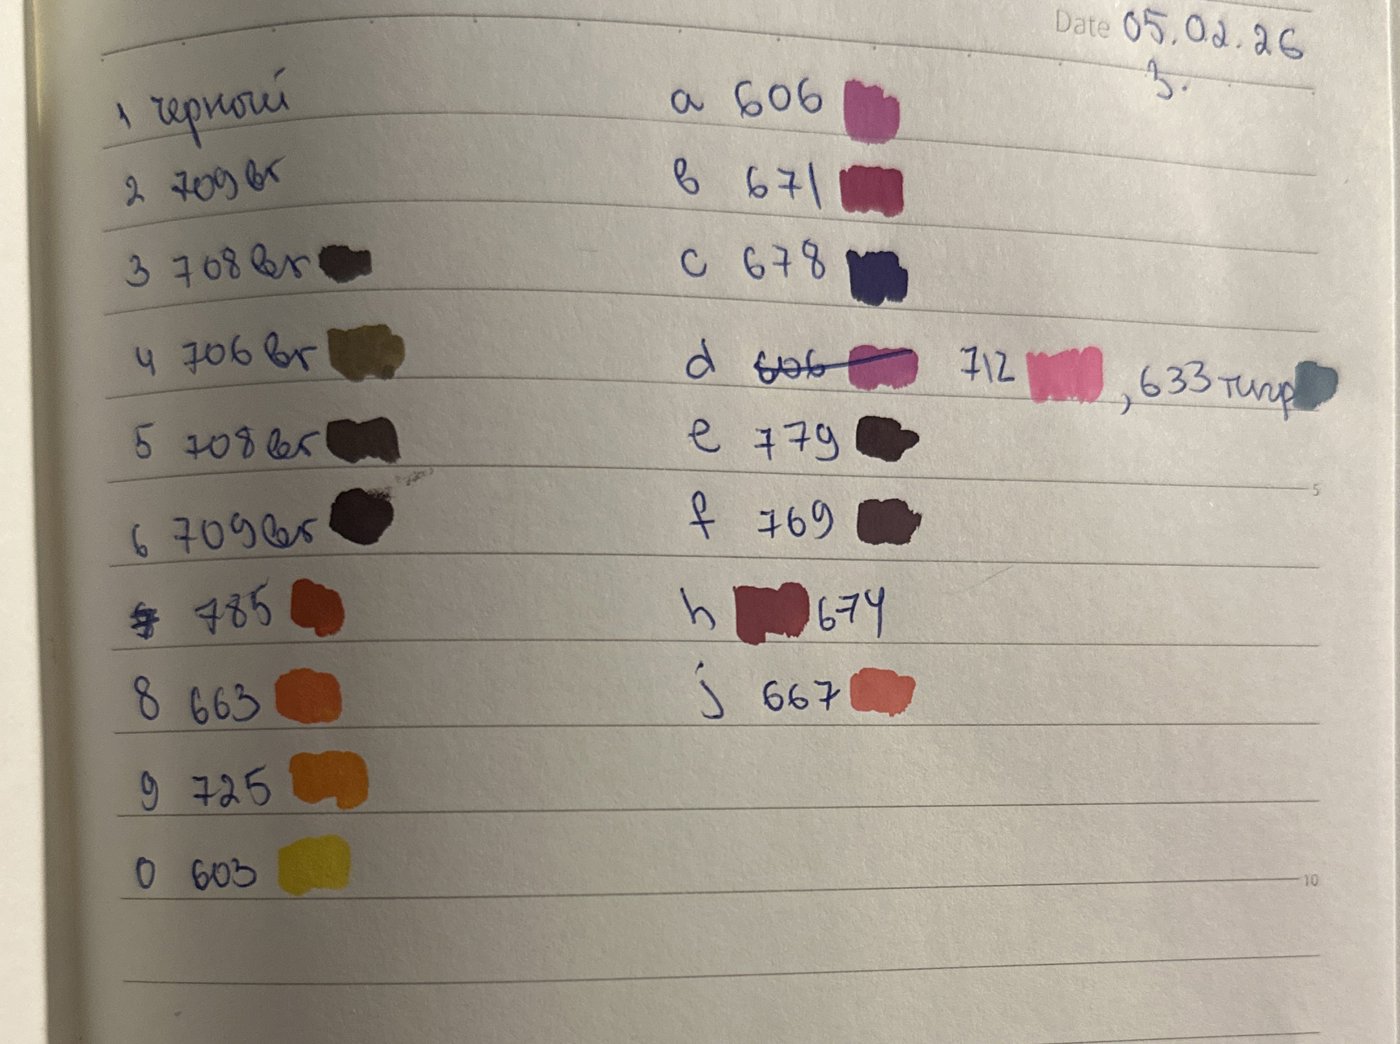 Date 05.02.26
3.
1 черный
2 709 вг
3 708 вг
4 706 вг
5 708 вг
6 709 вг
7 785
8 663
9 725
0 603
a 606
b 671
c 678
d 606 712 , 633 тигр
e 779
f 769
h 674
j 667
5
10